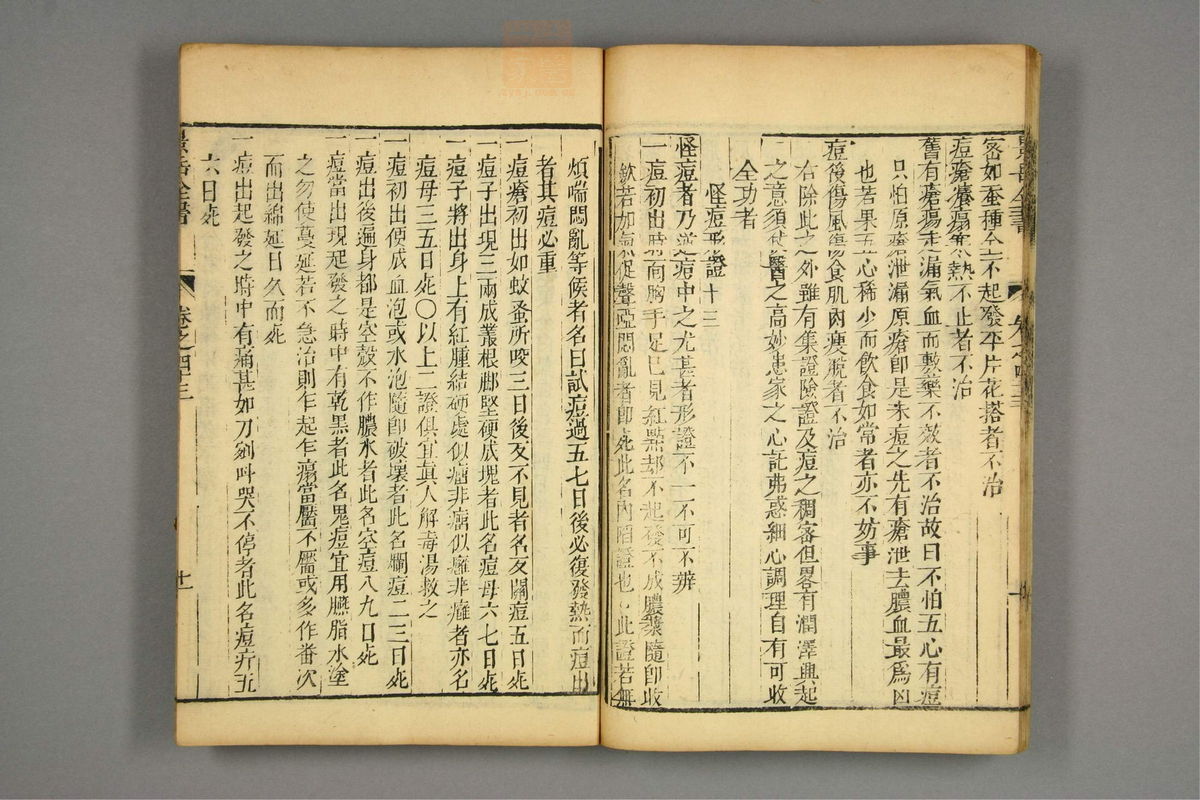 密如蚕種全不起發平片花搭者不治
痘瘡癢瘍寒熱不止者不治
舊有瘡瘍走漏氣血而敷藥不效者不治故曰不怕五心有痘
只怕原瘡泄漏原瘡即是未痘之先有瘡泄去膿血最爲凶
也若果五心稀少而飲食如常者亦不妨事
痘後傷風傷食肌肉瘦脱者不治
右除此之外雖有集證險證及痘之稠密但畧有潤澤興起
之意須仗醫之高妙患家之心託弗惑細心調理自有可收
全功者
怪痘形證 十三
怪痘者乃逆痘中之尤甚者形證不一不可不辨
一痘初出時面胸手足已見紅點却不起發不成膿漿隨即收
斂若加氣促聲啞悶亂者即死此名内陷證也○此證若無
煩喘悶亂等候者名曰試痘過五七日後必復發熱而痘出
者其痘必重
一痘瘡初出如蚊蚤所咬三日後反不見者名反關痘五日死
一痘子出現三兩成叢根脚堅硬成塊者此名痘母六七日死
一痘子將出身上有紅腫結硬處似瘤非瘤似癰非癰者亦名
痘母三五日死○以上二證俱宜真人解毒湯救之
一痘初出便成血泡或水泡隨即破壞者此名爛痘二三日死
一痘出後遍身都是空殼不作膿水者此名空痘八九日死
一痘當出現起發之時中有乾黑者此名鬼痘宜用臙脂水塗
之勿使蔓延若不急治則乍起乍瘍當靨不靨或多作番次
而出綿延日久而死
一痘出起發之時中有痛甚如刀剜呌哭不停者此名痘疔五
六日死
景岳全書
卷之四十三
十一